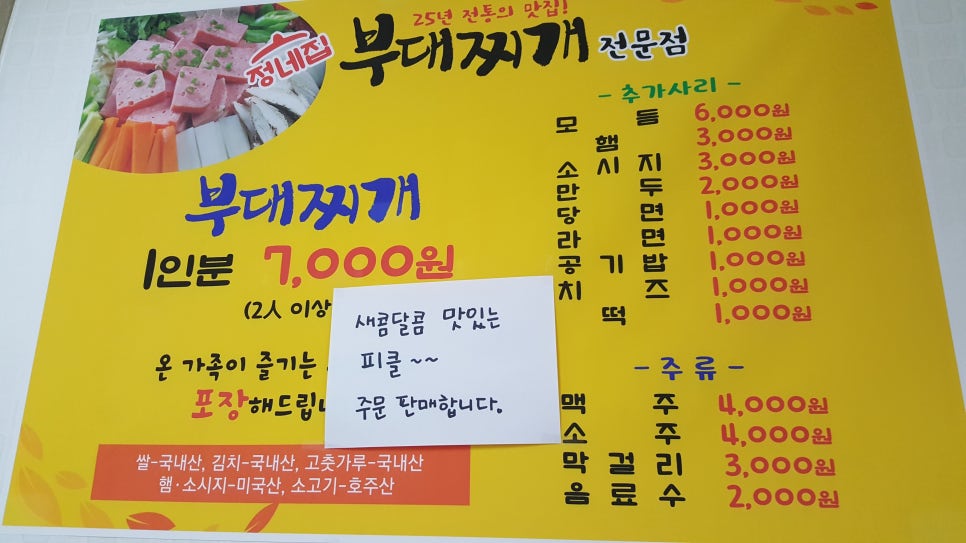 25년 전통의 맛집!
정네집 부대찌개 전문점
부대찌개
1인분 7,000원
(2人 이상
온 가족이 즐기는
포장해드립니
새콤달콤 맛있는
피클 ~~
주문 판매합니다.
쌀-국내산, 김치-국내산, 고춧가루-국내산
햄·소시지-미국산, 소고기-호주산
- 추가사리 -
모듬 6,000원
햄 3,000원
소시지 3,000원
만두 2,000원
당면 1,000원
라면 1,000원
공기밥 1,000원
치즈 1,000원
떡 1,000원
- 주류 -
맥주 4,000원
소주 4,000원
막걸리 3,000원
음료수 2,000원